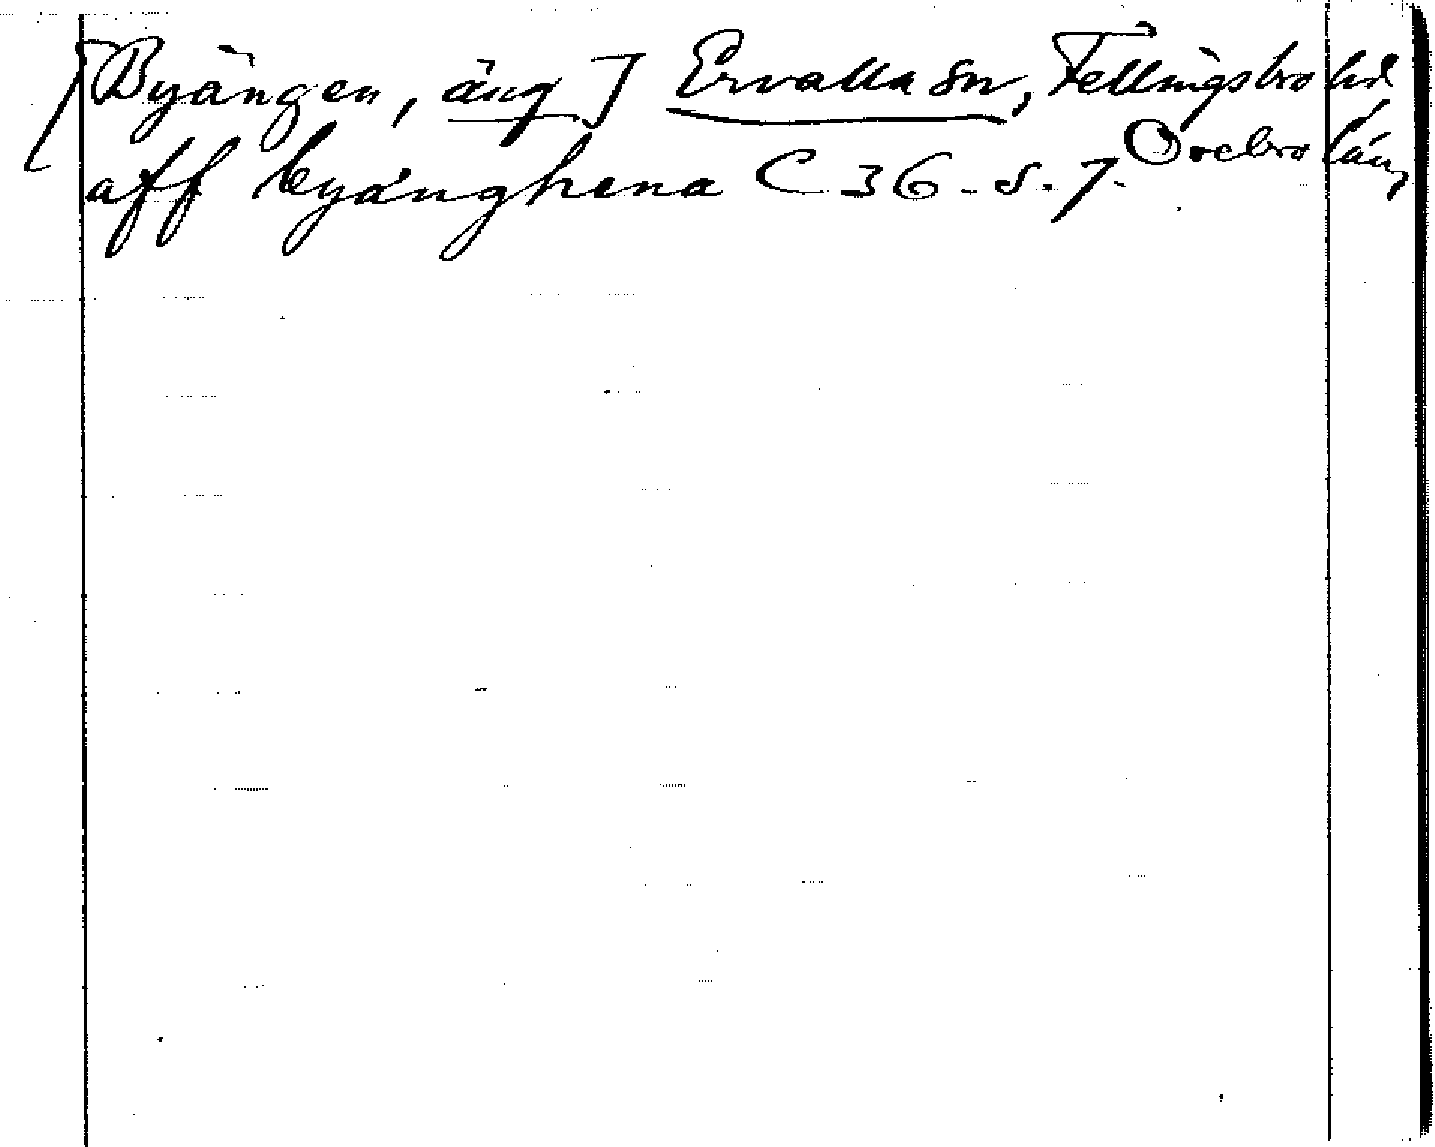 [Byängen, äng] Ervalla sn, Fellingsbro hd
Örebro län,
aff byänghena C 36. s. 7.